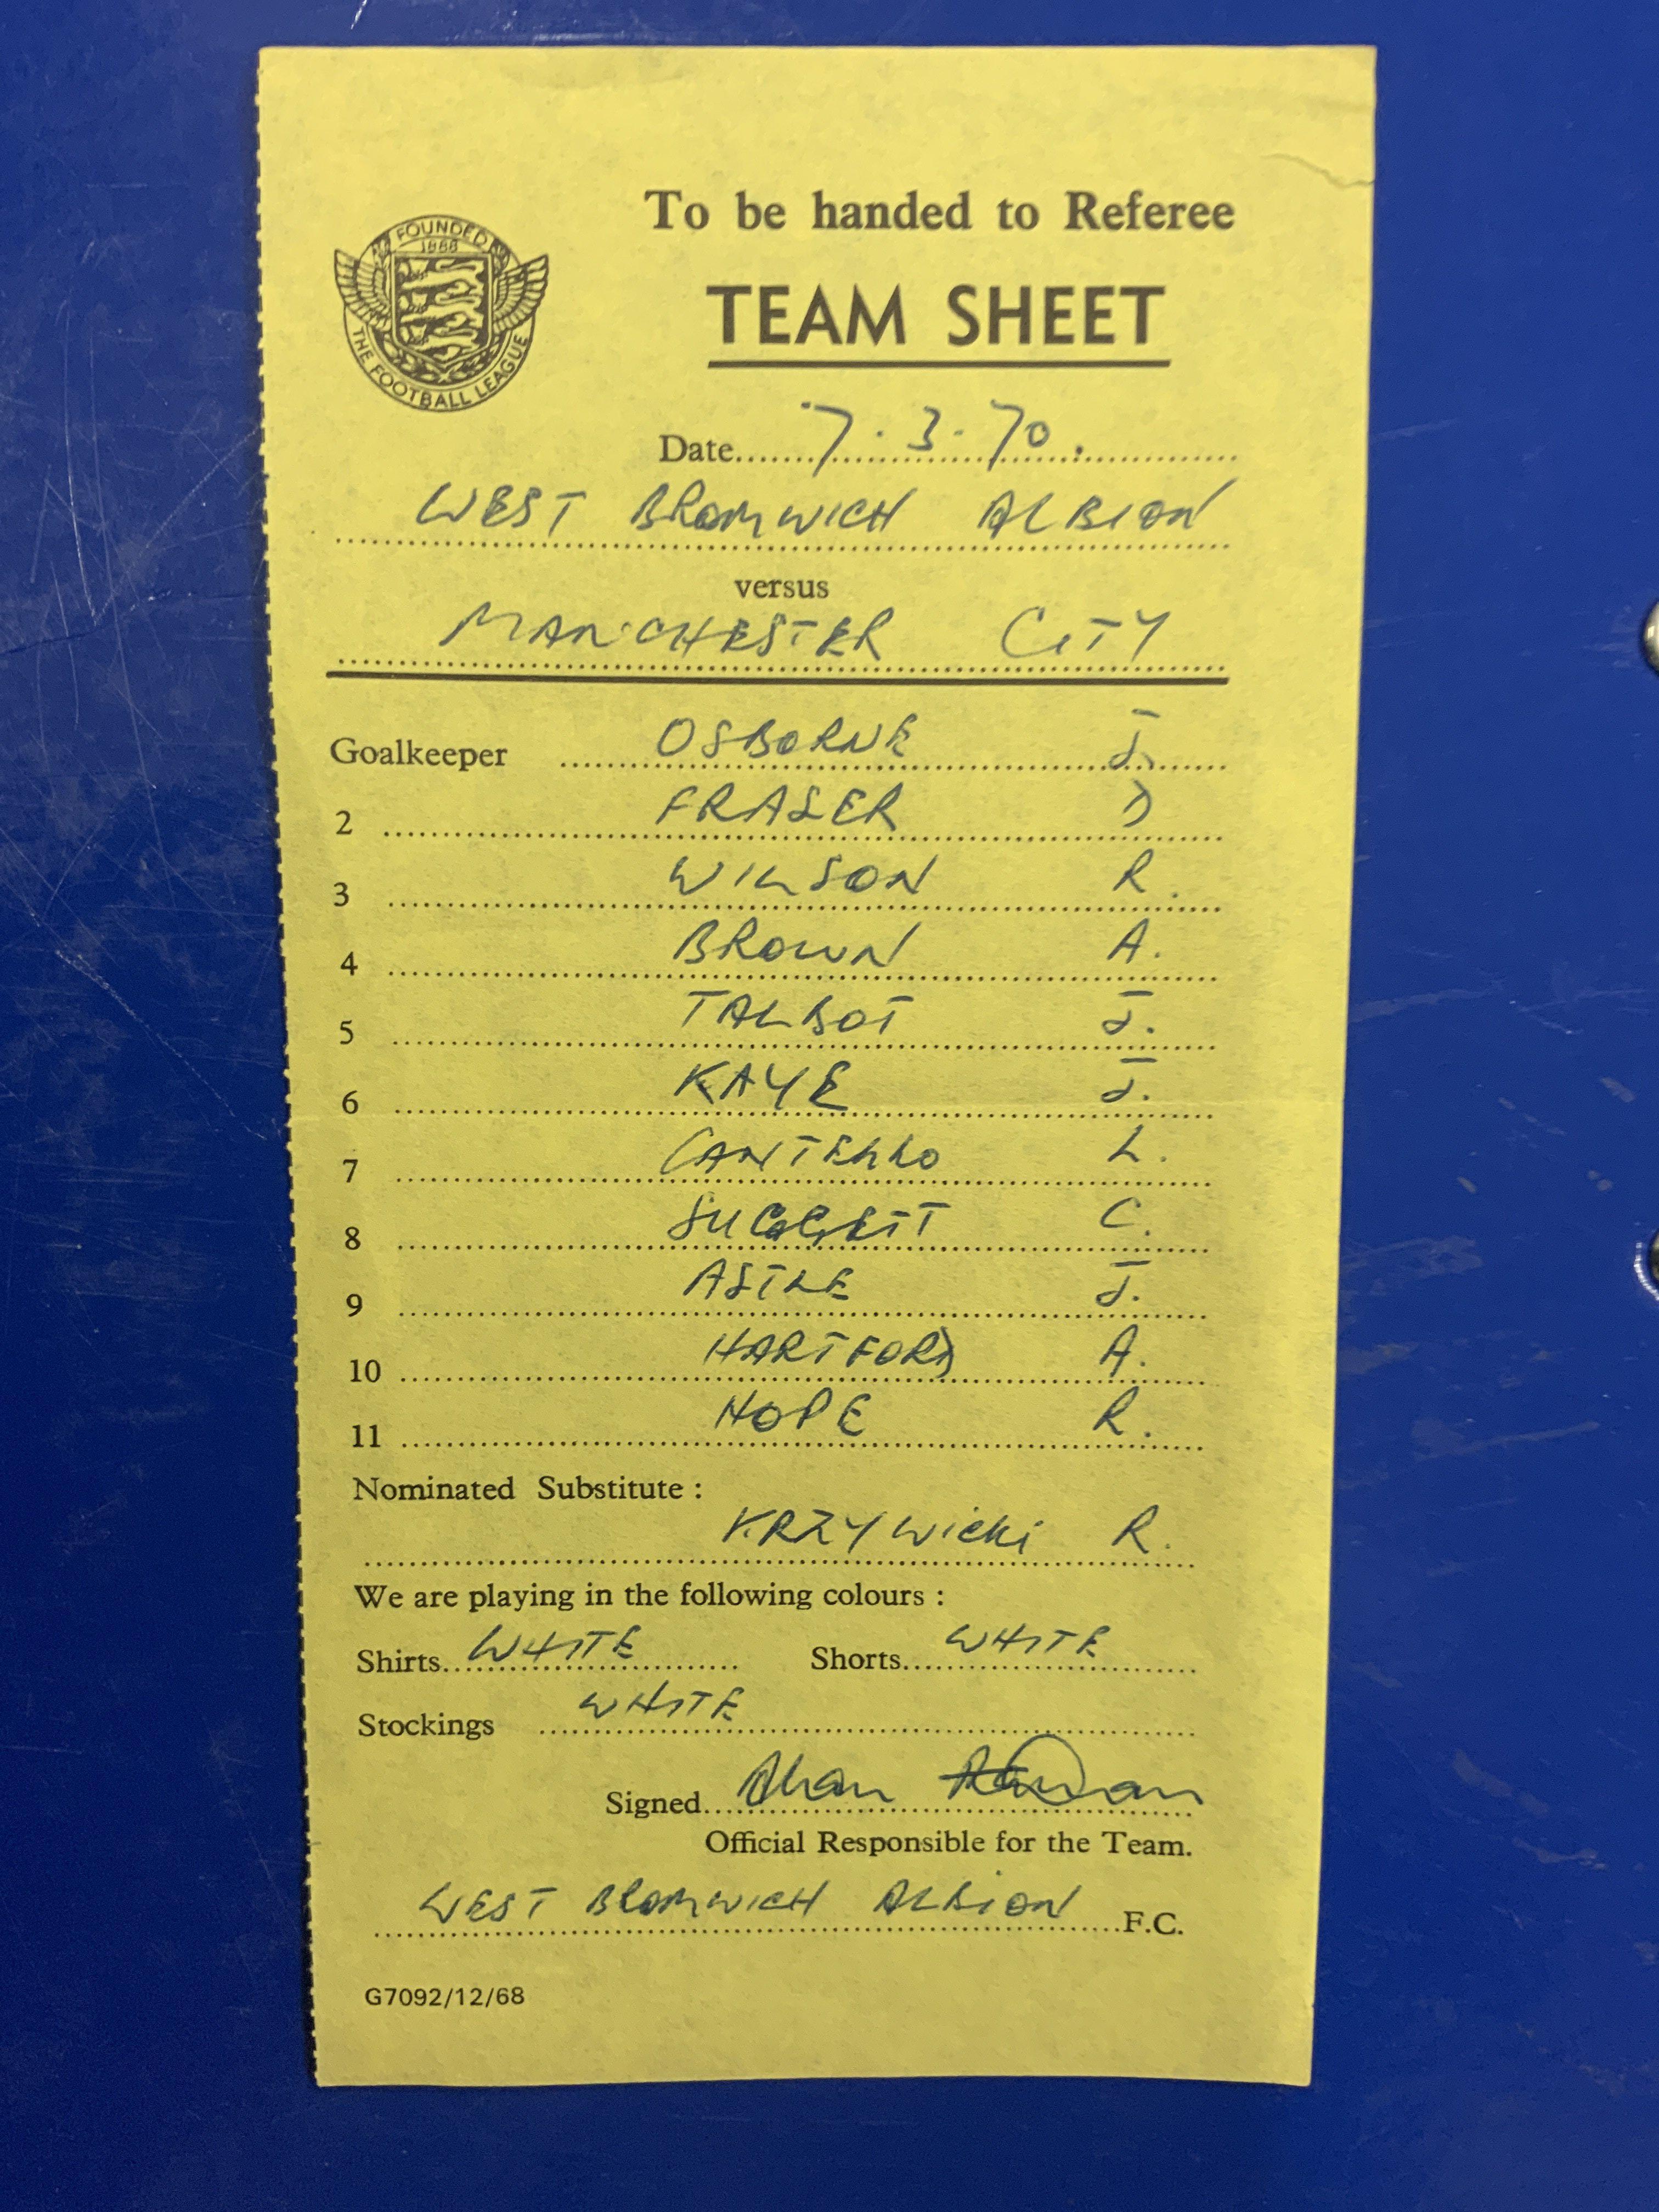 FOUNDED
1888
THE FOOTBALL LEAGUE
To be handed to Referee
TEAM SHEET
Date 7.3.70.
WEST BROMWICH ALBION
versus
MANCHESTER CITY
Goalkeeper OSBORNE J.
2 FRASER D
3 WILSON R.
4 BROWN A.
5 TALBOT J.
6 KAYE J.
7 CANTELLO L.
8 SUGGETT C.
9 ASTLE J.
10 HARTFORD A.
11 HOPE R.
Nominated Substitute :
KRZYWICKI R.
We are playing in the following colours :
Shirts WHITE Shorts WHITE
Stockings WHITE
Signed Alan
Official Responsible for the Team.
WEST BROMWICH ALBION F.C.
G7092/12/68